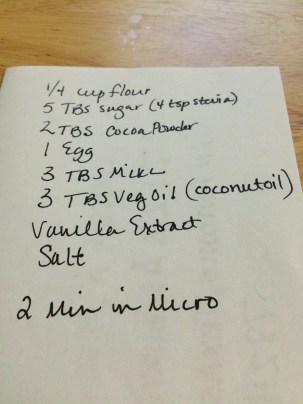 1/4 cup flour
5 TBS sugar (4 tsp stevia)
2 TBS Cocoa Powder
1 Egg
3 TBS Milk
3 TBS Veg Oil (coconut oil)
Vanilla Extract
Salt
2 Min in Micro